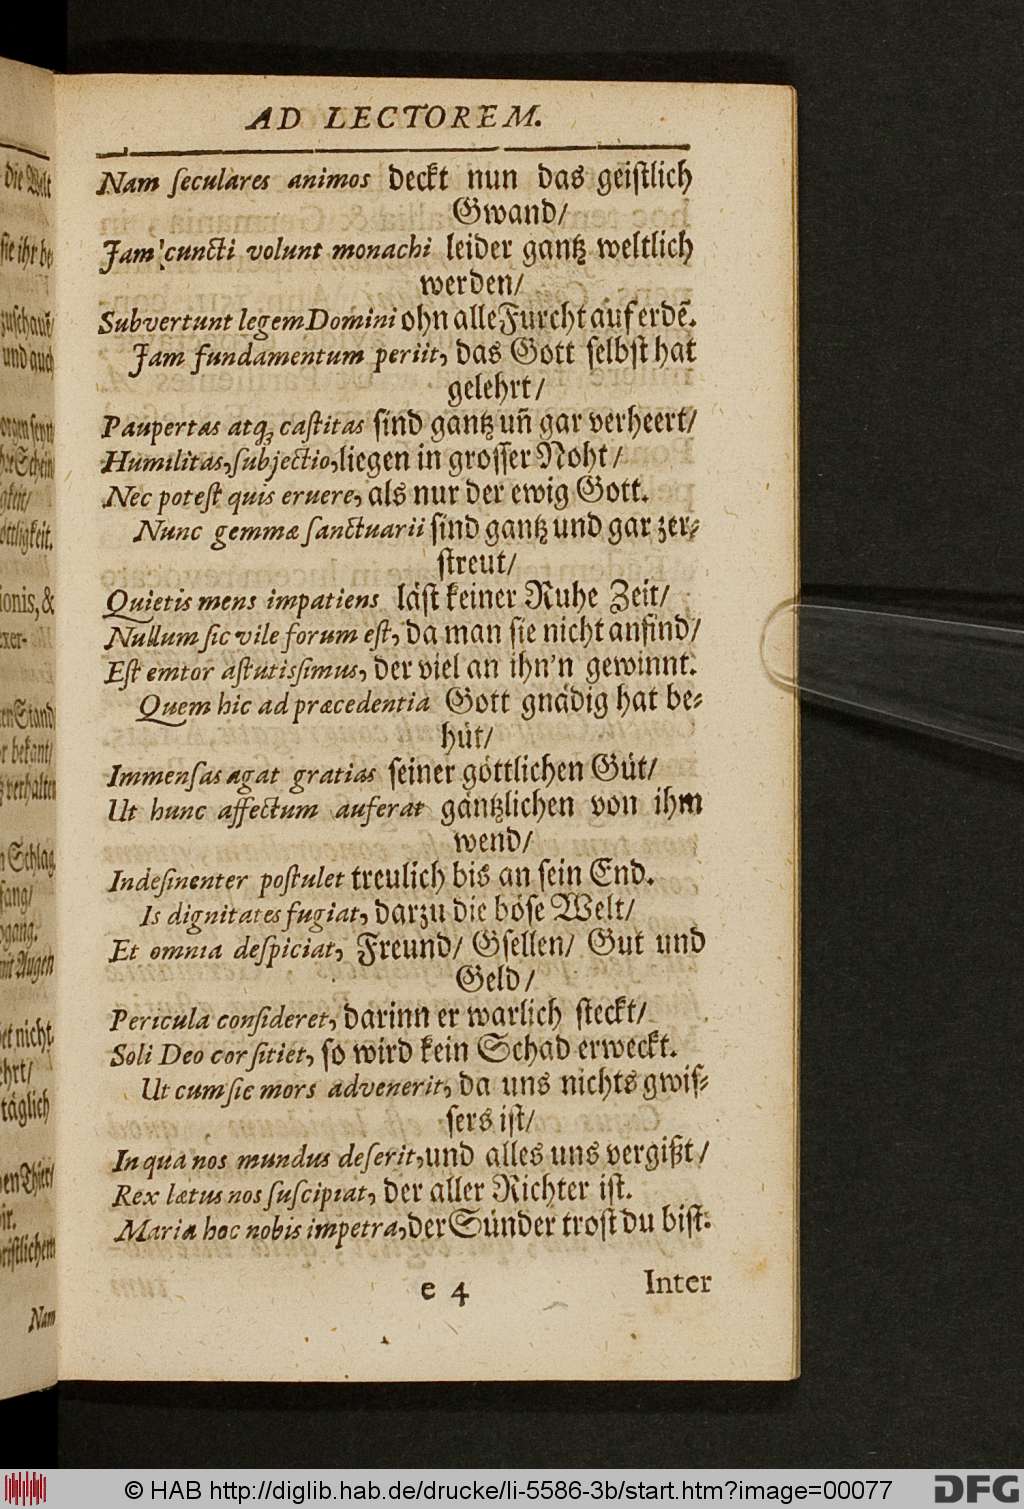 AD LECTOREM.
Nam ſeculares animos deckt nun das geiſtlich
Gwand/
Jam cuncti volunt monachi leider gantz weltlich
werden/
Subvertunt legem Domini ohn alle Furcht auf erdẽ.
Jam fundamentum periit, das Gott ſelbſt hat
gelehrt/
Paupertas atq; caſtitas ſind gantz uñ gar verheert/
Humilitas, ſubjectio, liegen in groſſer Noht/
Nec poteſt quis eruere, als nur der ewig Gott.
Nunc gemmæ ſanctuarii ſind gantz und gar zer-
ſtreut/
Quietis mens impatiens läſt keiner Ruhe Zeit/
Nullum ſic vile forum eſt, da man ſie nicht anfind/
Eſt emtor aſtutisſimus, der viel an ihn'n gewinnt.
Quem hic ad præcedentia Gott gnädig hat be-
hüt/
Immenſas agat gratias ſeiner göttlichen Güt/
Ut hunc affectum auferat gäntzlichen von ihm
wend/
Indeſinenter poſtulet treulich bis an ſein End.
Is dignitates fugiat, darzu die böſe Welt/
Et omnia deſpiciat, Freund/ Gſellen/ Gut und
Geld/
Pericula conſideret, darinn er warlich ſteckt/
Soli Deo cor ſitiet, ſo wird kein Schad erweckt.
Ut cum ſic mors advenerit, da uns nichts gwiſ-
ſers iſt/
In qua nos mundus deſerit, und alles uns vergißt/
Rex lætus nos ſuſcipiat, der aller Richter iſt.
Maria hoc nobis impetra, der Sünder troſt du biſt.
e 4
Inter
die Welt
ſie ihr be
zuſchauẽ/
und auch
ottligkeit.
ionis, &
exer-
en Stand
r bekant/
verhalten
n Schlag
fang/
Augen
et nicht.
hrt/
täglich
en Thier/
riſtlichem
Nam
© HAB http://diglib.hab.de/drucke/li-5586-3b/start.htm?image=00077
DFG